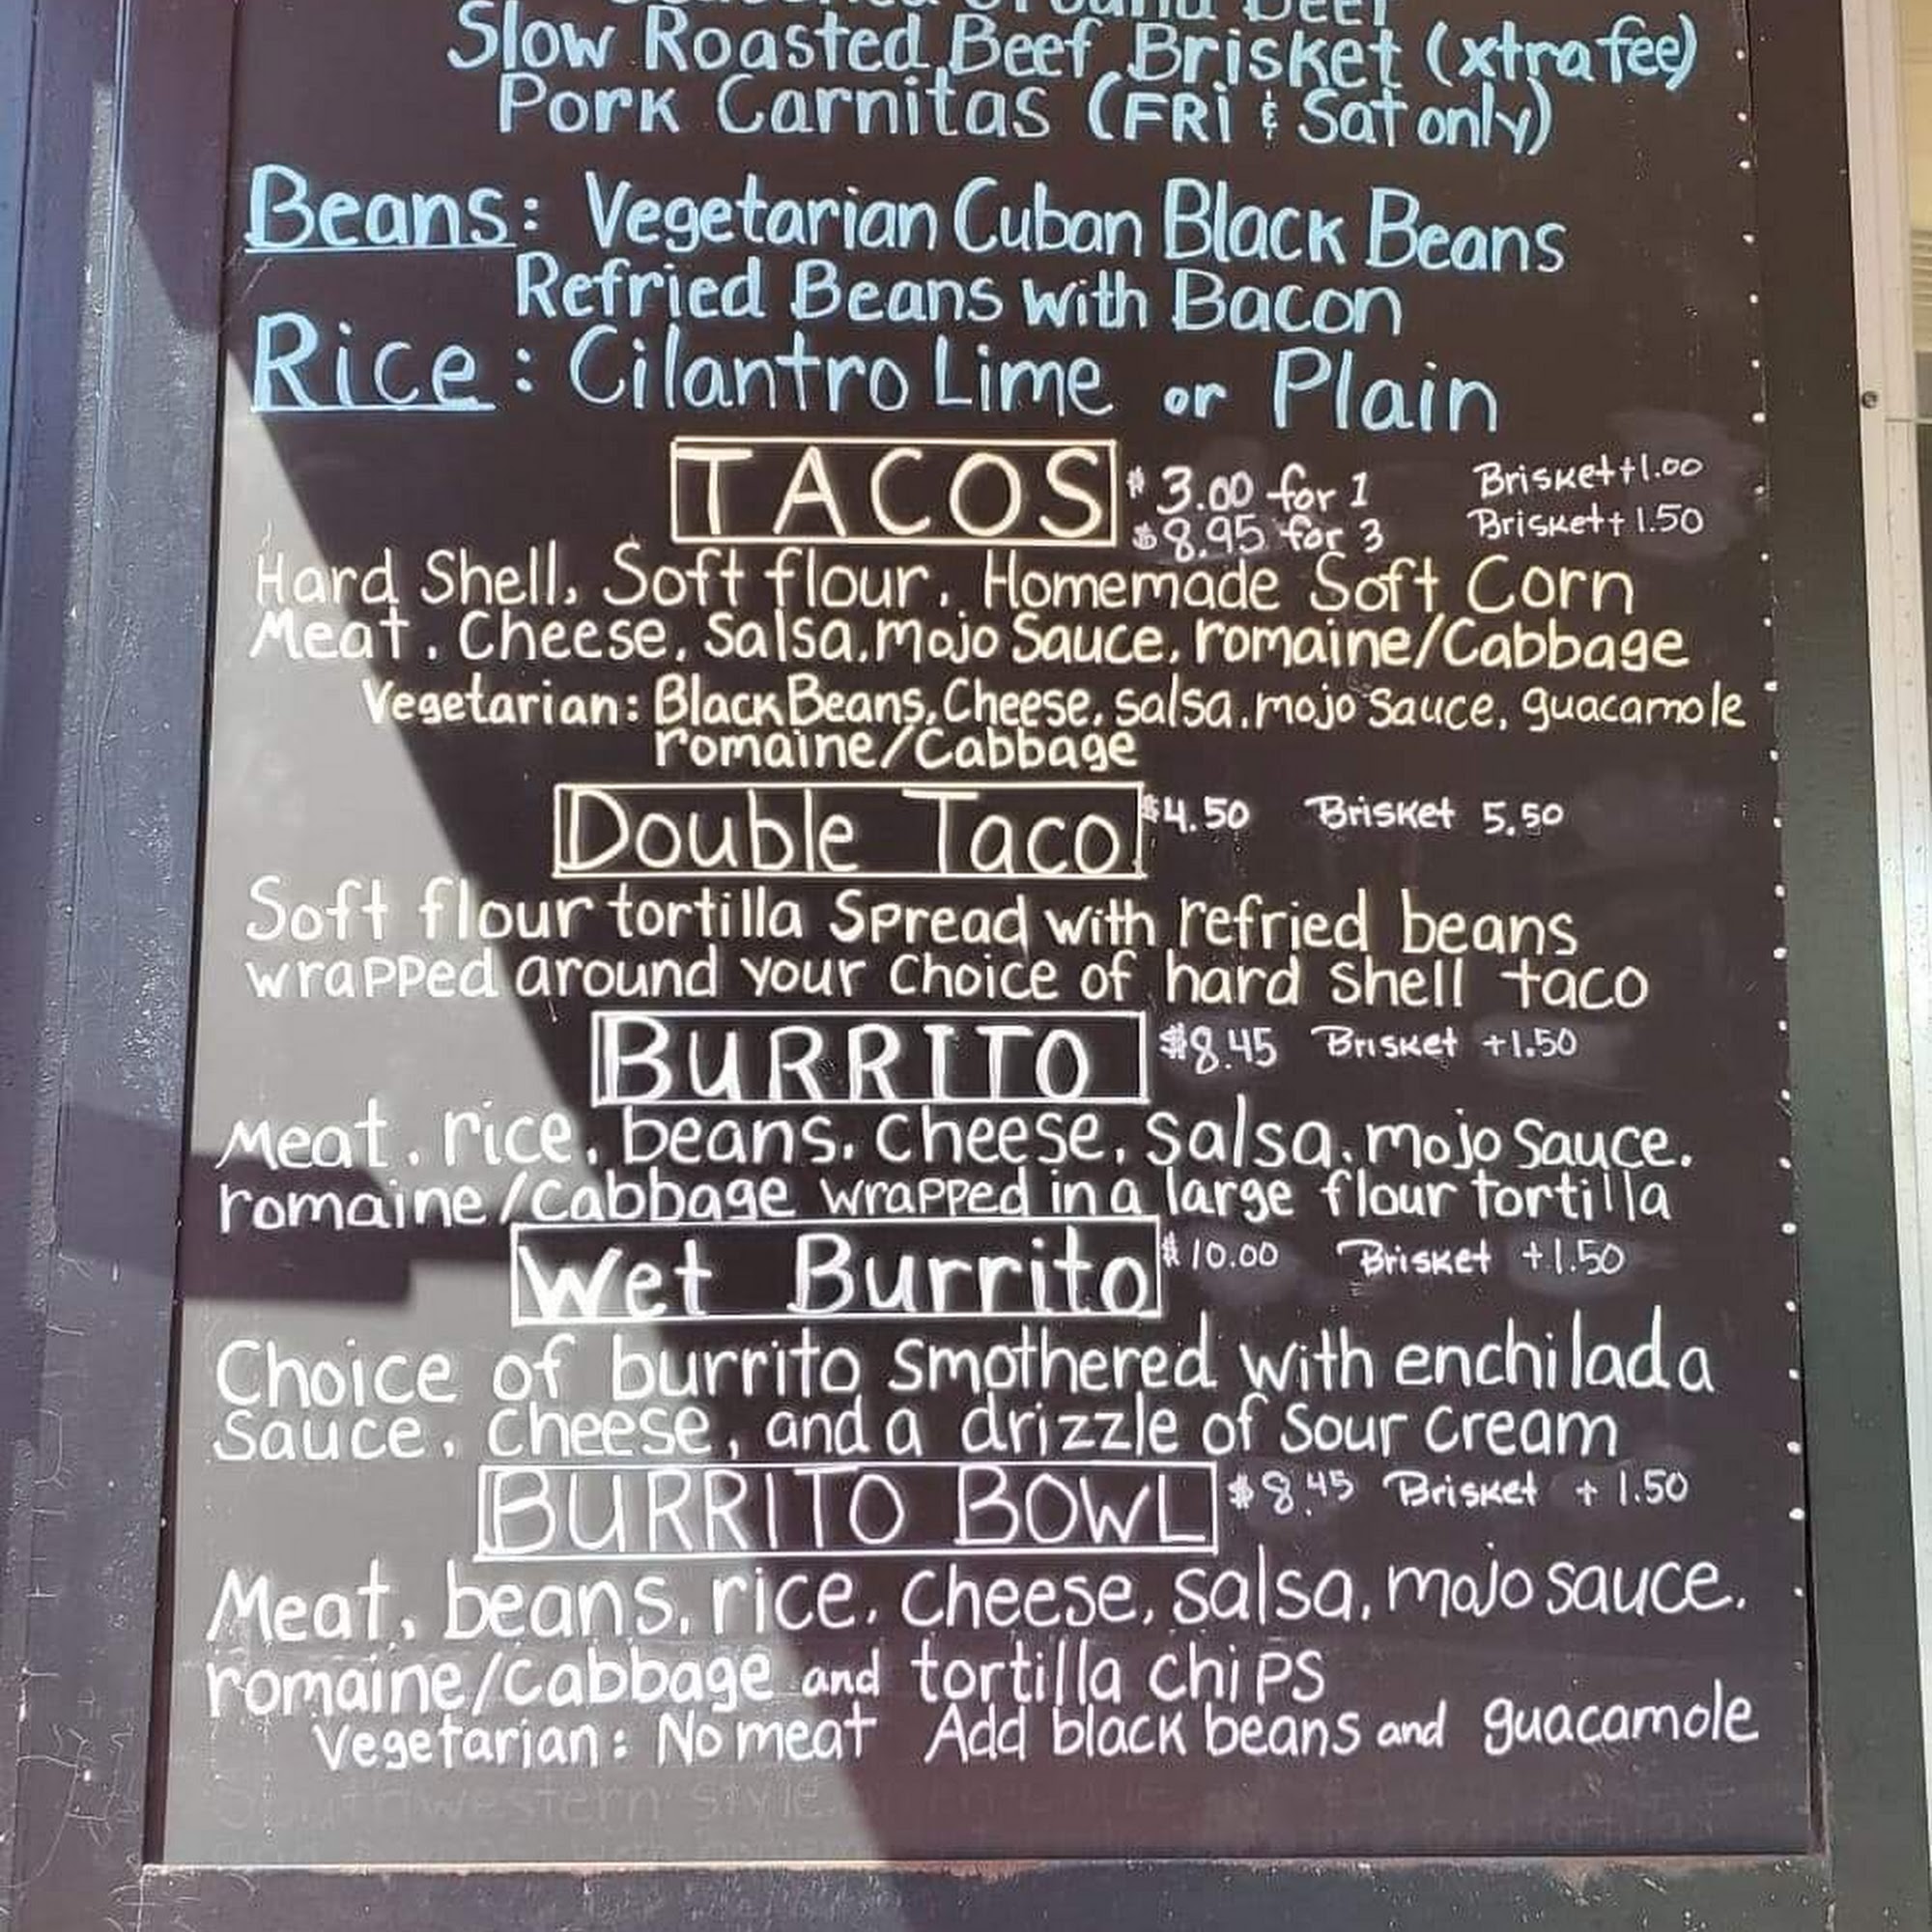 Seasoned Ground Beef
Slow Roasted Beef Brisket (xtra fee)
Pork Carnitas (FRi & Sat only)
Beans: Vegetarian Cuban Black Beans
Refried Beans with Bacon
Rice: Cilantro Lime or Plain
TACOS $3.00 for 1 Brisket +1.00
$8.95 for 3 Brisket + 1.50
Hard Shell, Soft flour, Homemade Soft Corn
Meat, Cheese, Salsa, mojo Sauce, romaine/Cabbage
Vegetarian: Black Beans, Cheese, salsa, mojo Sauce, guacamole
romaine/Cabbage
Double Taco $4.50 Brisket 5.50
Soft flour tortilla Spread with refried beans
wrapped around your choice of hard shell taco
BURRITO $8.45 Brisket +1.50
Meat, rice, beans, cheese, salsa, mojo sauce,
romaine/Cabbage wrapped in a large flour tortilla
Wet Burrito $10.00 Brisket +1.50
Choice of burrito smothered with enchilada
Sauce, cheese, and a drizzle of Sour cream
BURRITO BOWL $8.45 Brisket + 1.50
Meat, beans, rice, cheese, salsa, mojo sauce,
romaine/cabbage and tortilla chips
Vegetarian: No meat Add black beans and guacamole
Southwestern style